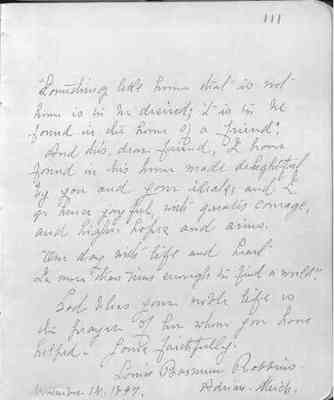 111
"Something like home that is not
home is to be desired; it is to be
found in the home of a friend".
And this, dear friend, I have
found in this home made delightful
by you and your ideals, and I
go hence joyful, with greater courage,
and higher hopes and aims.
"One day with life and heart
Is more than time enough to find a world."
God bless your noble life is
the prayer of her whom you have
helped. Yours faithfully.
Louise Robbins
Adrian. Mich.
14. 1897.